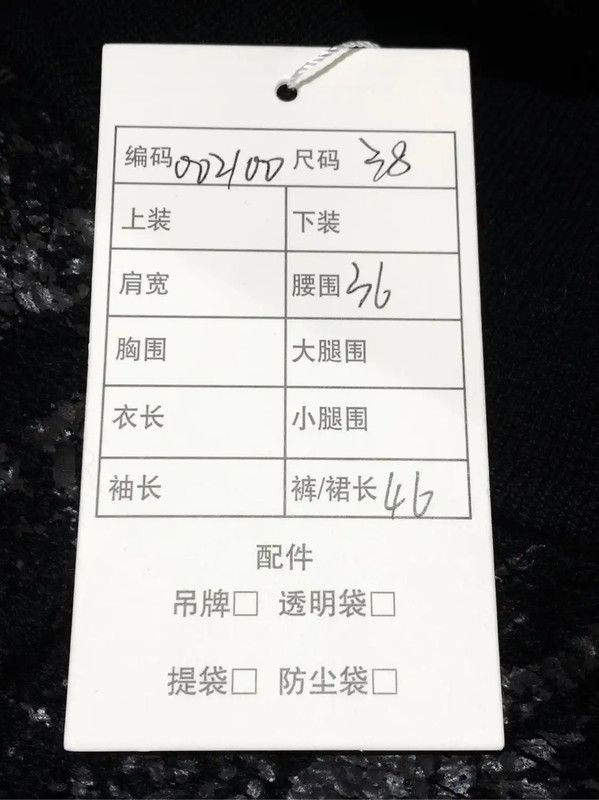 编码 002100 尺码 38
上装 下装
肩宽 腰围 36
胸围 大腿围
衣长 小腿围
袖长 裤/裙长 46
配件
吊牌□ 透明袋□
提袋□ 防尘袋□